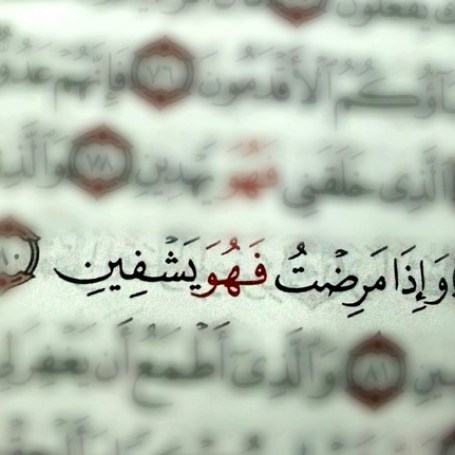 ك يفعلون
آبَاؤُكُمُ الْأَقْدَمُونَ ٧٦ فَإِنَّهُمْ عَدُوٌّ
الَّذِي خَلَقَنِي فَهُوَ يَهْدِينِ ٧٨ وَالَّذِي
وَإِذَا مَرِضْتُ فَهُوَ يَشْفِينِ ٨٠
ين ٨١ وَالَّذِي أَطْمَعُ أَن يَغْفِرَ لِي